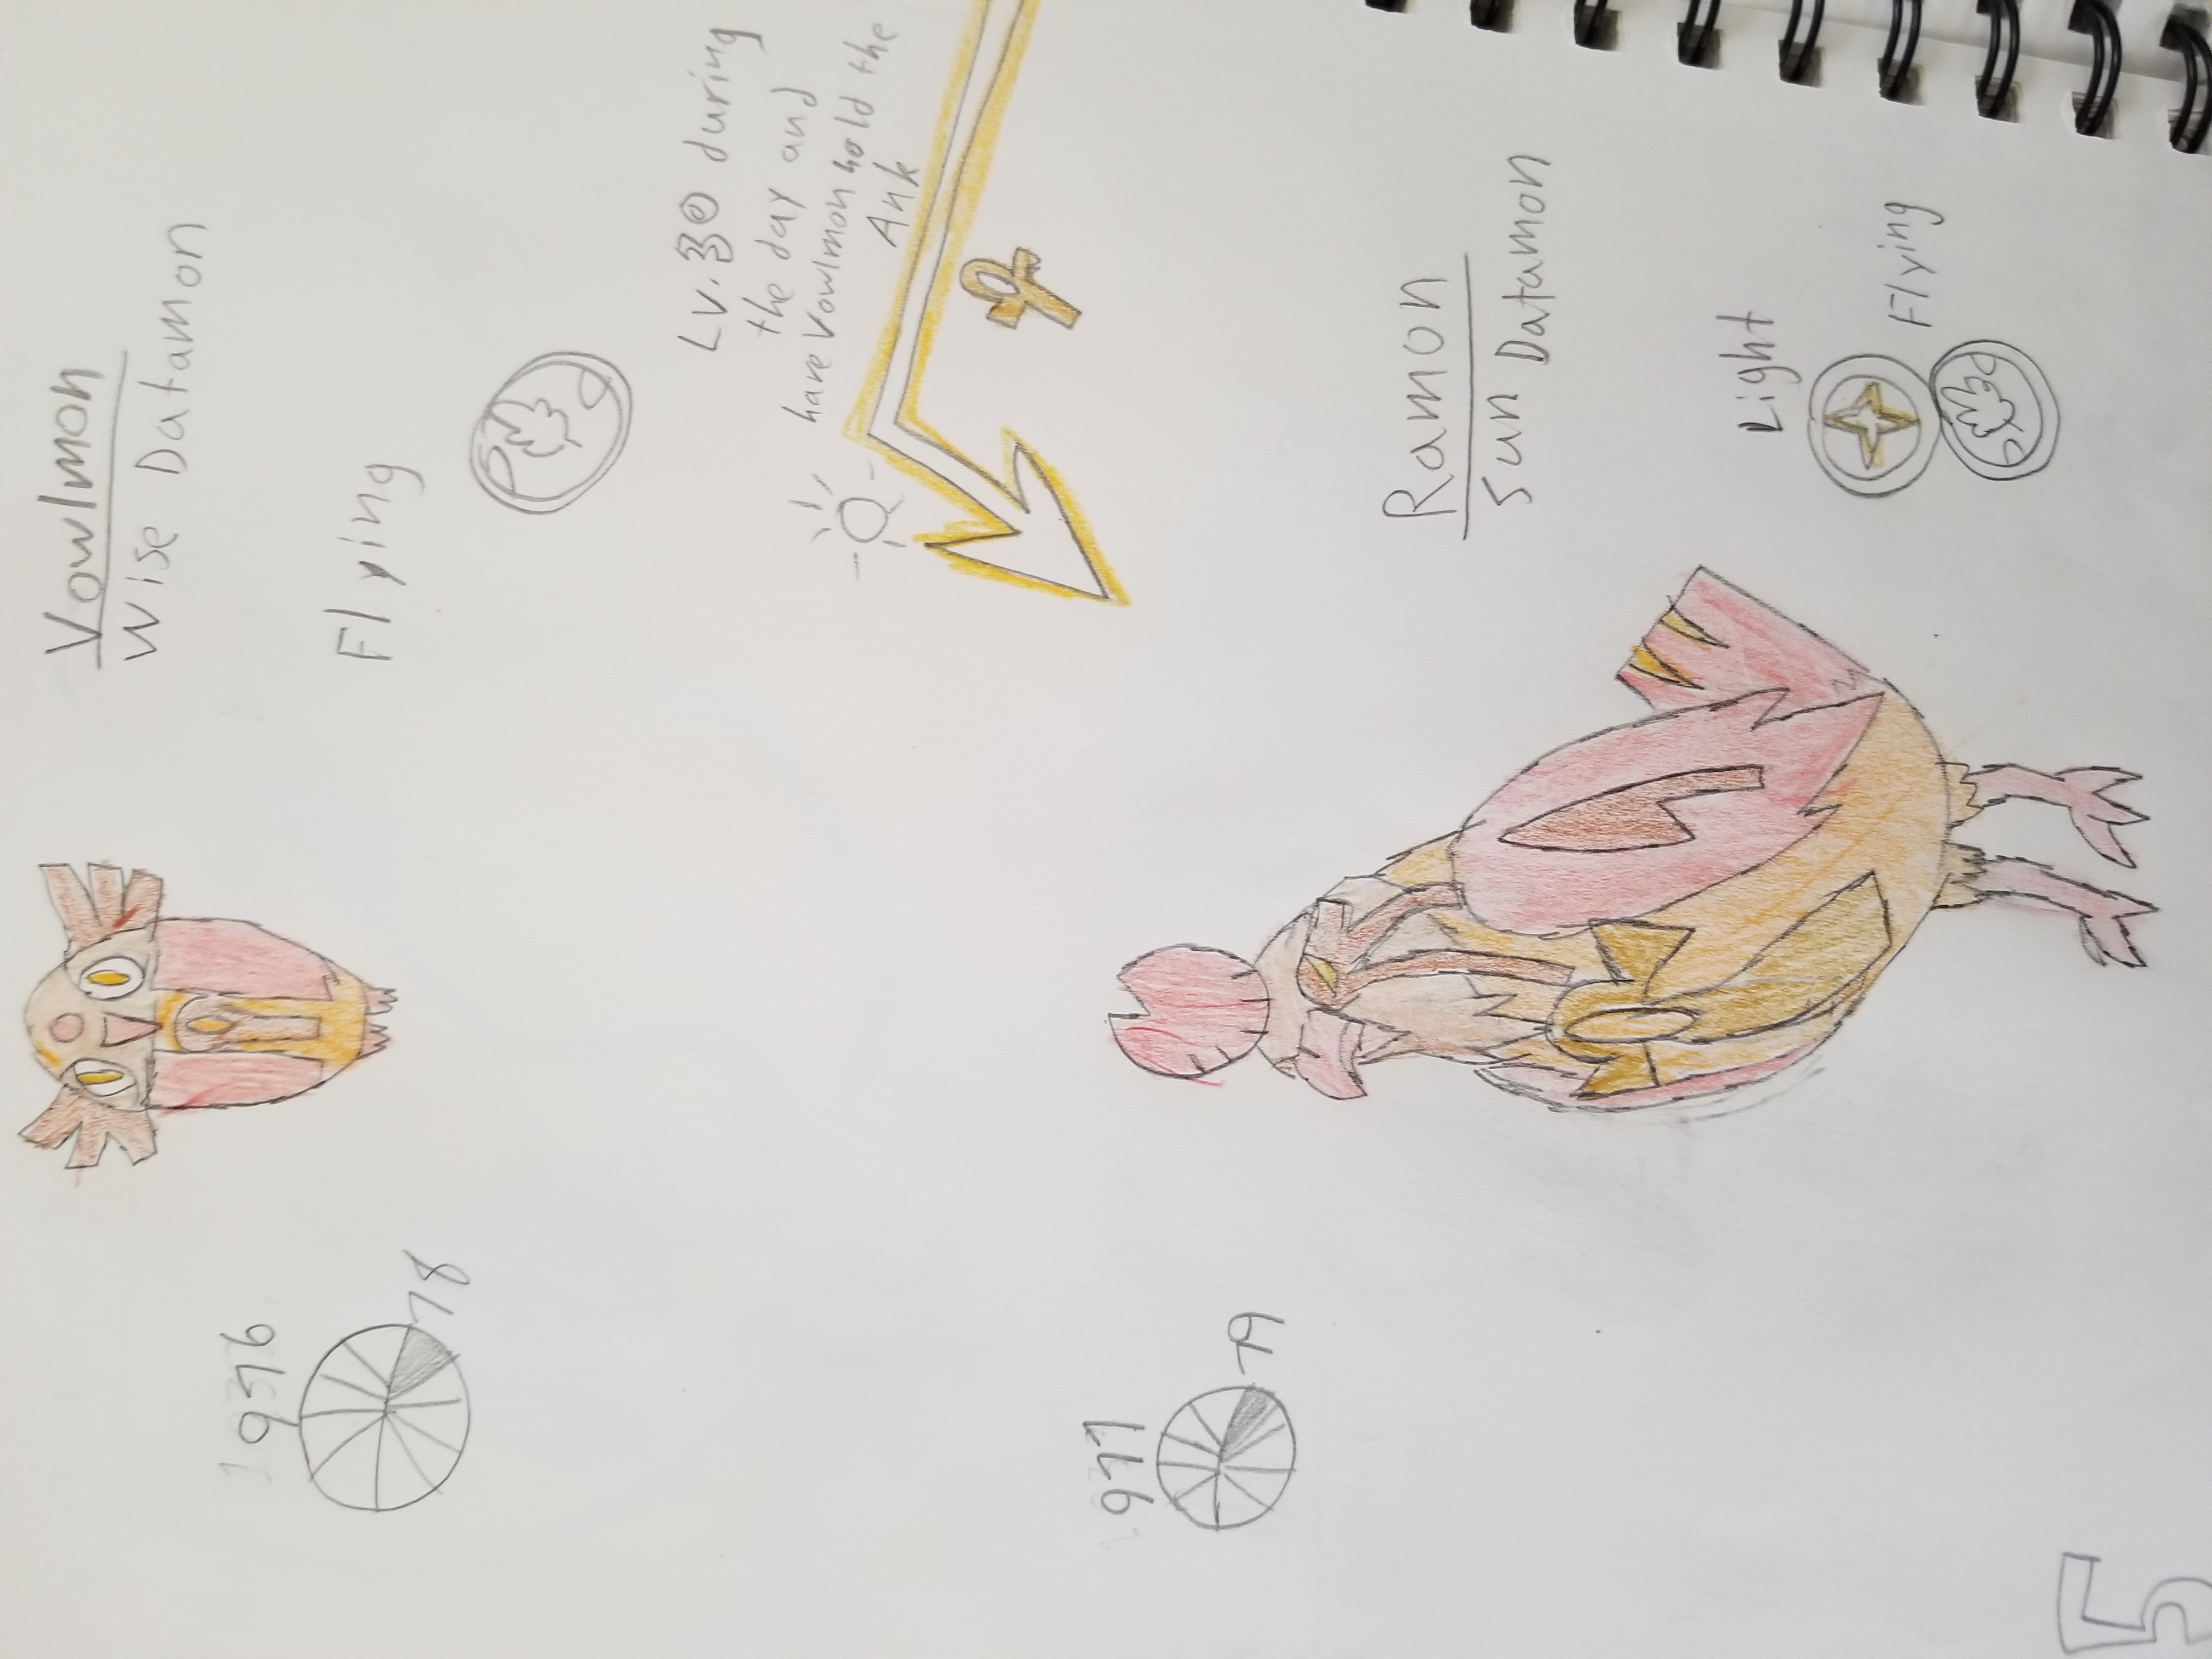 Vowlmon
Wise Datamon
976
78
Flying
Lv. 30 during
the day and
have Vowlmon hold the
Ank
977
79
Ramon
Sun Datamon
Light
Flying
5